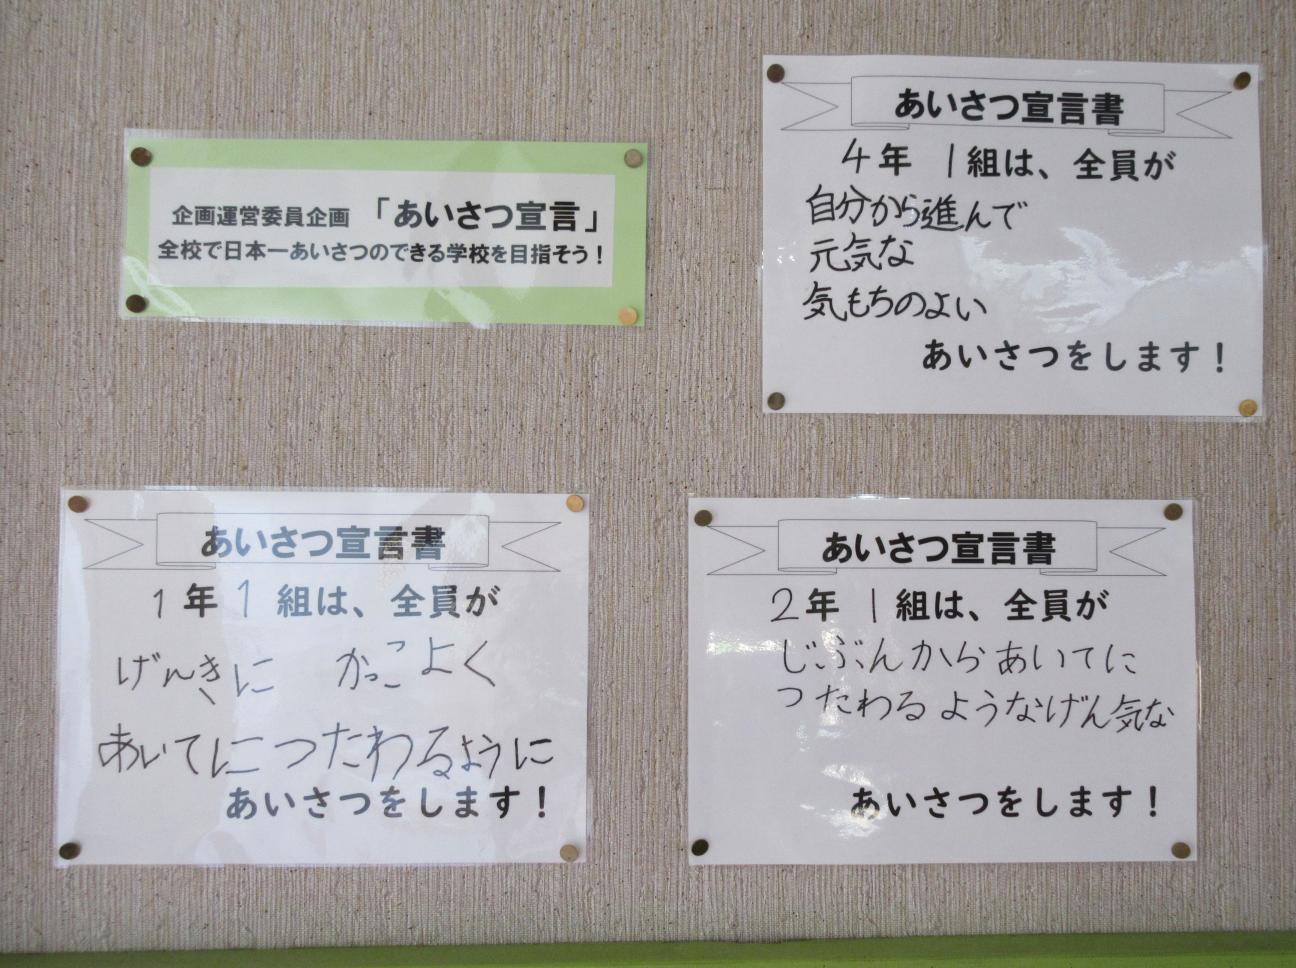 企画運営委員企画 「あいさつ宣言」
全校で日本一あいさつのできる学校を目指そう！
あいさつ宣言書
4年 1組は、全員が
自分から進んで
元気な
気もちのよい
あいさつをします！
あいさつ宣言書
1年 1組は、全員が
げんきに かっこよく
あいてにつたわるように
あいさつをします！
あいさつ宣言書
2年 1組は、全員が
じぶんからあいてに
つたわるようなげん気な
あいさつをします！